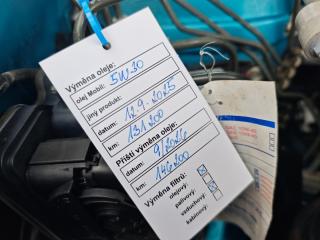 Výměna oleje:
olej Mobil: 5W30
jiný produkt:
datum: 12.9.2025
km: 131.200
Příští výměna oleje:
datum: 9/2026
km: 146.200
Výměna filtrů:
olejový:
palivový:
vzduchový:
kabinový: